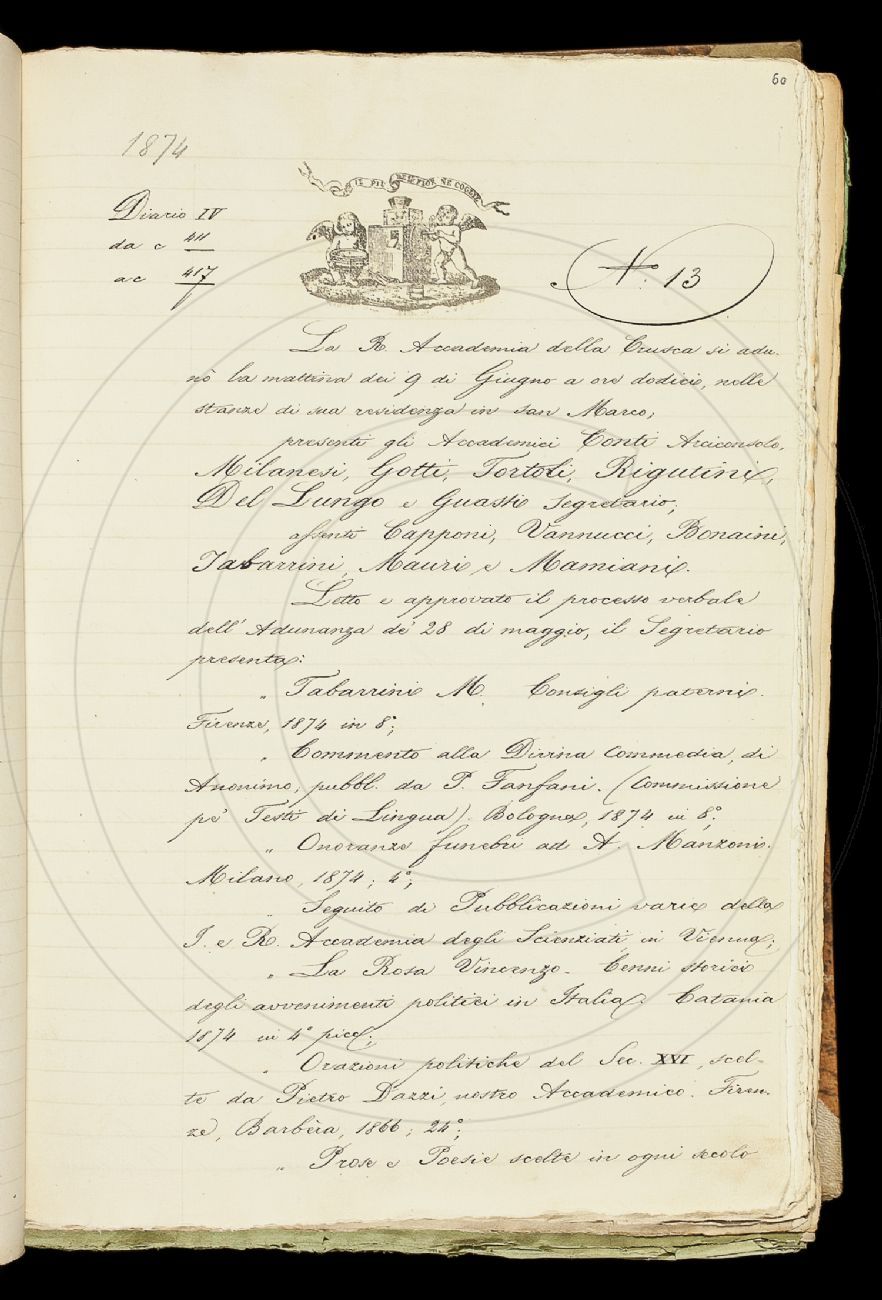 60
1874
IL PIÙ BEL FIOR NE COGLIE
Diario IV
da c 411
a c 417
N. 13
La R. Accademia della Crusca si adu-
nò la mattina dei 9 di Giugno a ore dodici, nelle
stanze di sua residenza in San Marco;
presenti gli Accademici Conti Arciconsolo,
Milanesi, Gotti, Tortoli, Rigutini,
Del Lungo e Guasti Segretario;
assenti Capponi, Vannucci, Bonaini,
Tabarrini, Mauri e Mamiani.
Letto e approvato il processo verbale
dell' Adunanza de' 28 di maggio, il Segretario
presenta:
„ Tabarrini M. Consigli paterni.
Firenze, 1874 in 8°;
„ Commento alla Divina Commedia, di
Anonimo, pubbl. da P. Fanfani. (Commissione
pe' Testi di Lingua). Bologna, 1874 in 8°;
„ Onoranze funebri ad A. Manzoni.
Milano, 1874; 4°;
„ Seguito di Pubblicazioni varie della
I. e R. Accademia degli Scienziati in Vienna;
„ La Rosa Vincenzo. Cenni storici
degli avvenimenti politici in Italia. Catania
1874 in 4° picc.;
„ Orazioni politiche del Sec. XVI, scel-
te da Pietro Dazzi, nostro Accademico. Firen-
ze, Barbèra, 1866; 24°;
„ Prose e Poesie scelte in ogni secolo